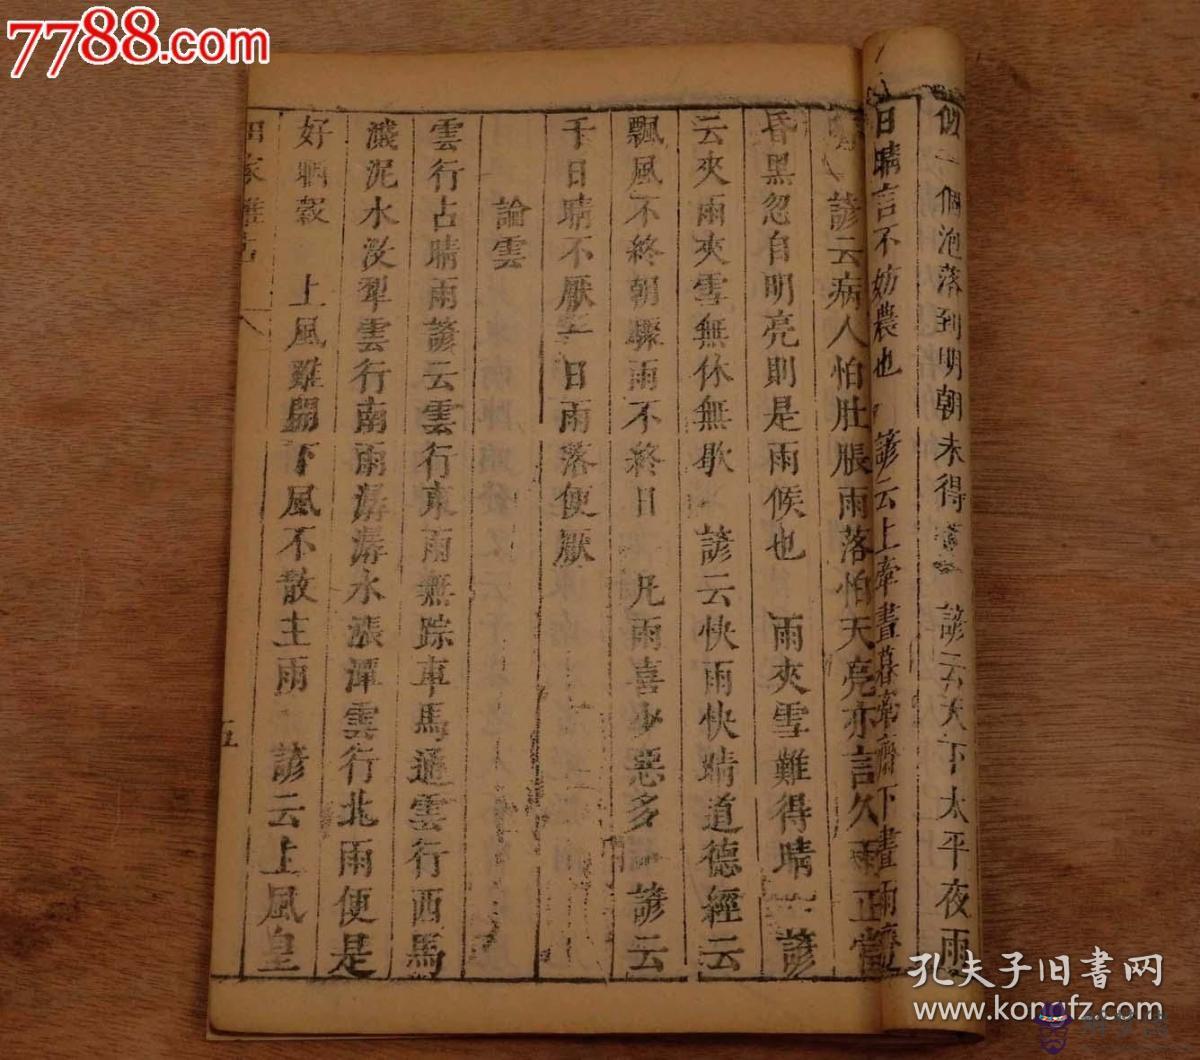 7788.com
一個泡落到明朝未得 諺云天下太平夜雨
日晴言不妨農也 諺云上牽晝暮牽齋下晝雨
諺云病人怕肚脹雨落怕天亮亦言久雨正當
昏黑忽自明亮則是雨候也 雨夾雪難得晴 諺
云夾雨夾雪無休無歇 諺云快雨快晴道德經云
飄風不終朝驟雨不終日 凡雨喜少惡多 諺云
千日晴不厭一日雨落便厭
論雲
雲行占晴雨諺云雲行東雨無踪車馬通雲行西馬
濺泥水沒犁雲行南雨潺潺水漲潭雲行北雨便是
好晒穀 上風雖開下風不散主雨 諺云上風皇
田家雜占 五
孔夫子旧書网
www.kongfz.com